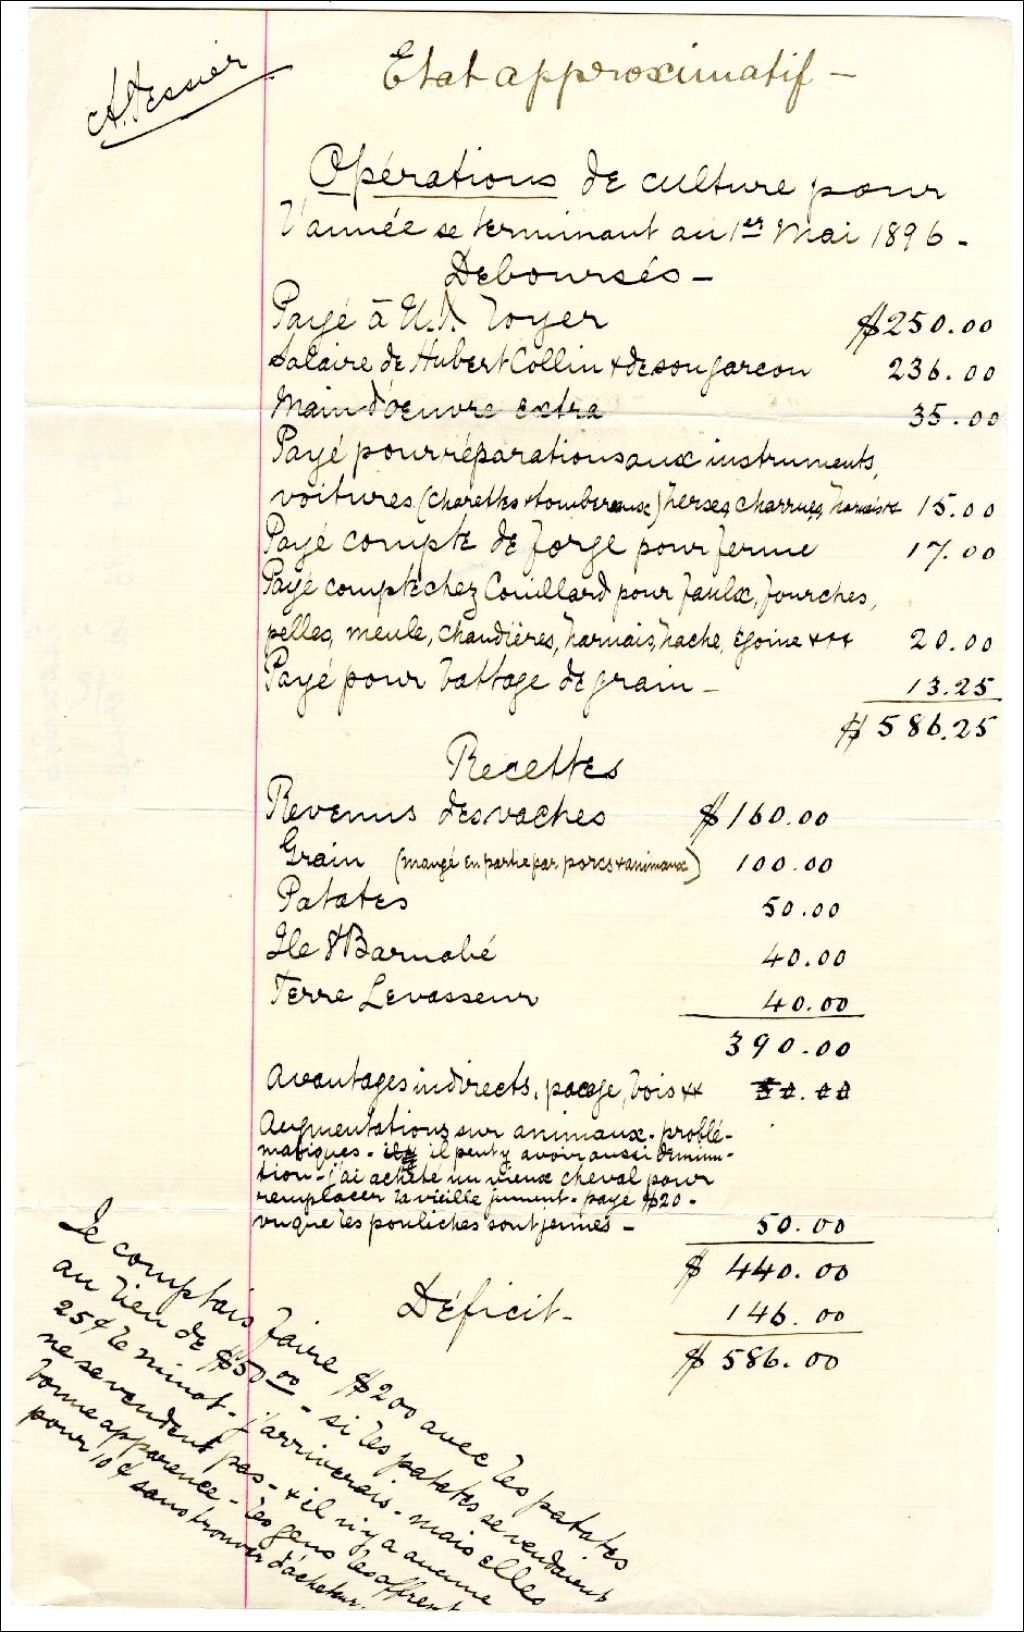 A. Tessier
Etat approximatif -
Opérations de culture pour
l'année se terminant au 1er Mai 1896 -
Déboursés -
Payé à U. J. Royer $250.00
Salaire de Hubert Collin & de son garçon 236.00
Main d'oeuvre extra 35.00
Payé pour réparations aux instruments,
voitures (charettes & tombereaux) herses, charrues, harnais & 15.00
Payé compte de forge pour ferme 17.00
Payé compte chez Couillard pour faulx, fourches,
pelles, meule, chaudières, harnais, hache, égoine & & & 20.00
Payé pour battage de grain - 13.25
$ 586.25
Recettes
Revenus des vaches $160.00
Grain (mangé en partie par porcs & animaux) 100.00
Patates 50.00
Ile St Barnabé 40.00
Terre Levasseur 40.00
390.00
Avantages indirects, pacage, bois & & 50.00
Augmentations sur animaux - problé-
matiques - il peut y avoir aussi diminu-
tion - j'ai acheté un vieux cheval pour
remplacer la vieille jument - payé $20 -
vu que les pouliches sont jeunes - 50.00
$ 440.00
Déficit - 146.00
$ 586.00
Je comptais faire $200 avec les patates
au lieu de $50.00 - si les patates se vendaient
25¢ le minot - j'arriverais - mais elles
ne se vendent pas - & il n'y a aucune
bonne apparence - les gens les offrent
pour 10¢ sans trouver d'acheteur.